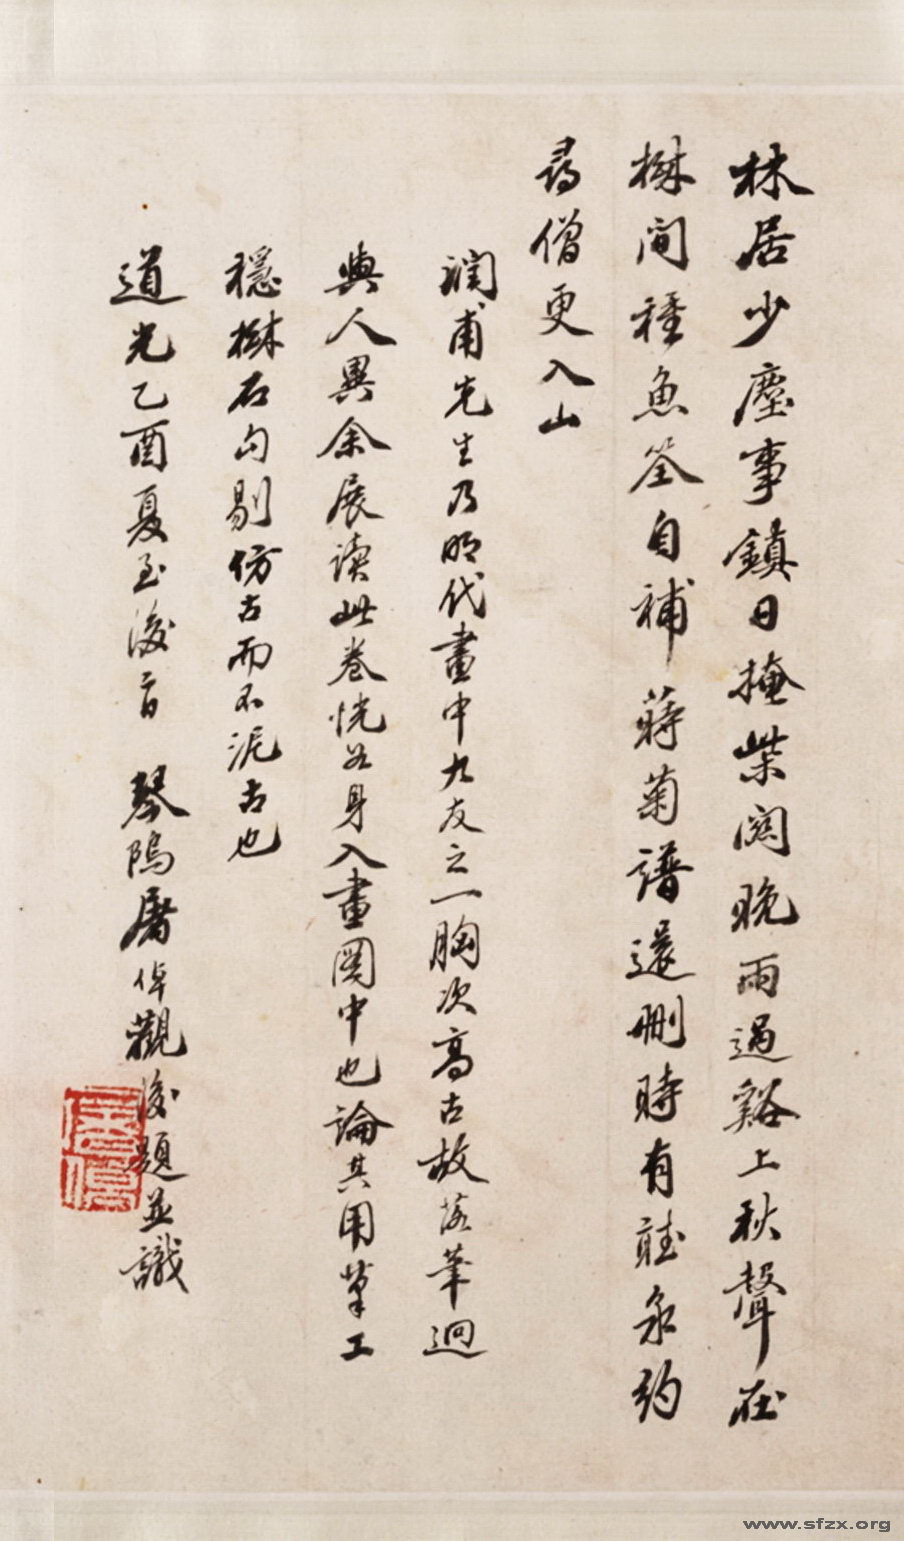 林居少塵事鎮日掩柴関晚雨過谿上秋聲在
樹間種魚荃自補蒔菊譜還刪時有聽泉約
尋僧更入山
潤甫先生乃明代畫中九友之一胸次高古故落筆迥
與人異余展讀此卷恍若身入畫圖中也論其用筆工
穩樹石勾剔仿古而不泥古也
道光乙酉夏至後二日 琴隖屠倬觀後題並識
屠倬
www.sfzx.org